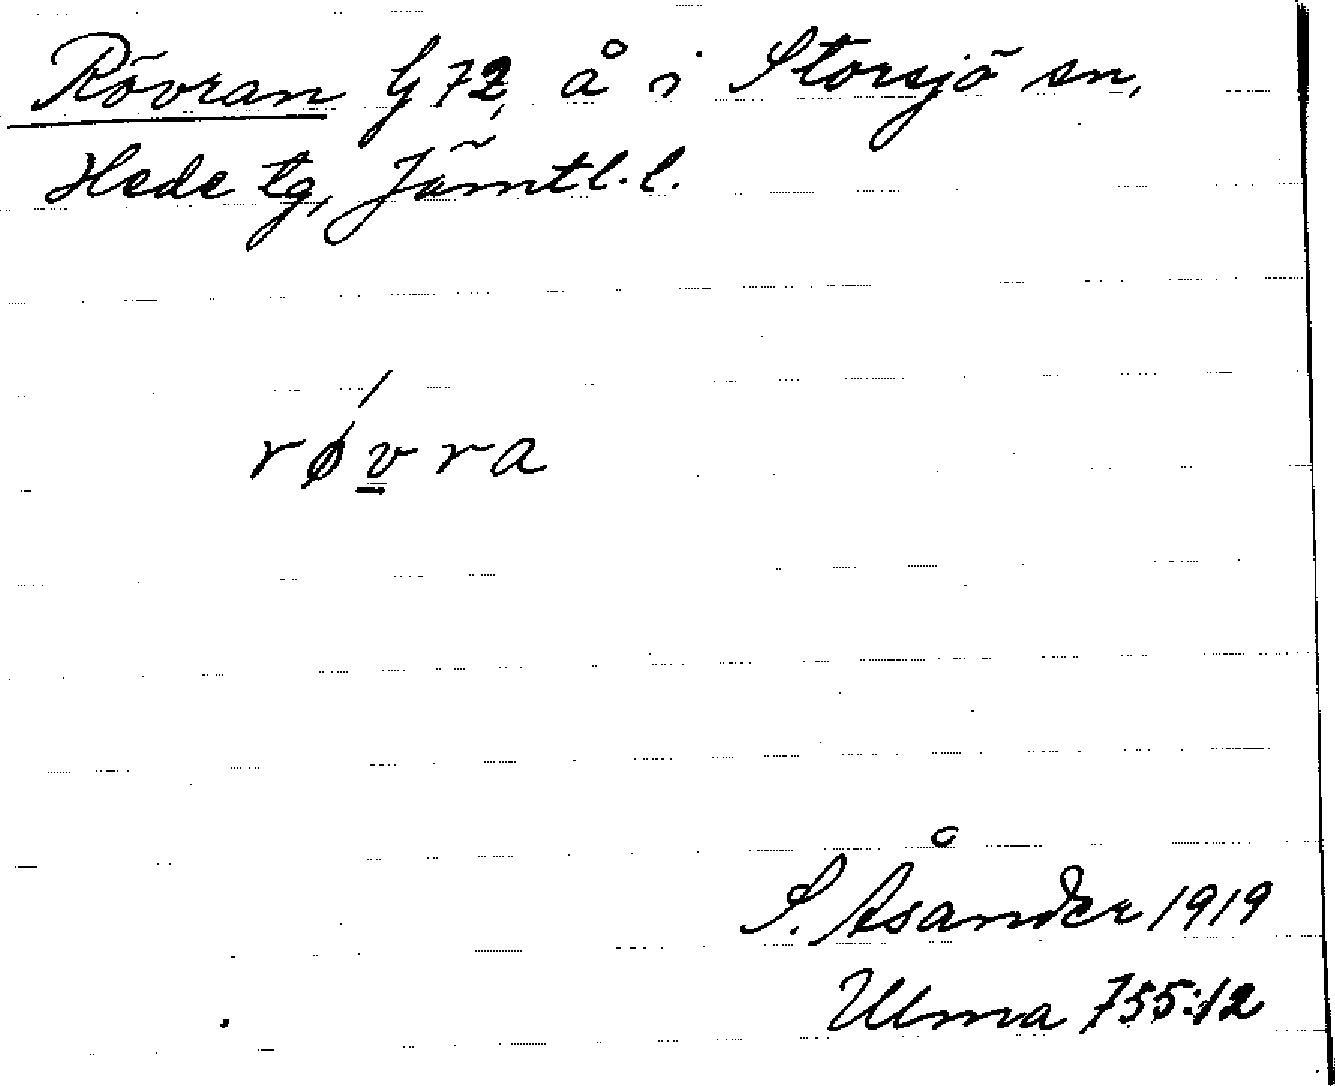 Rövran G 72, å i Storsjö sn,
Hede tg, Jämtl. l.
rǿv̲ra
S. Åsander 1919
Ulma 755:12